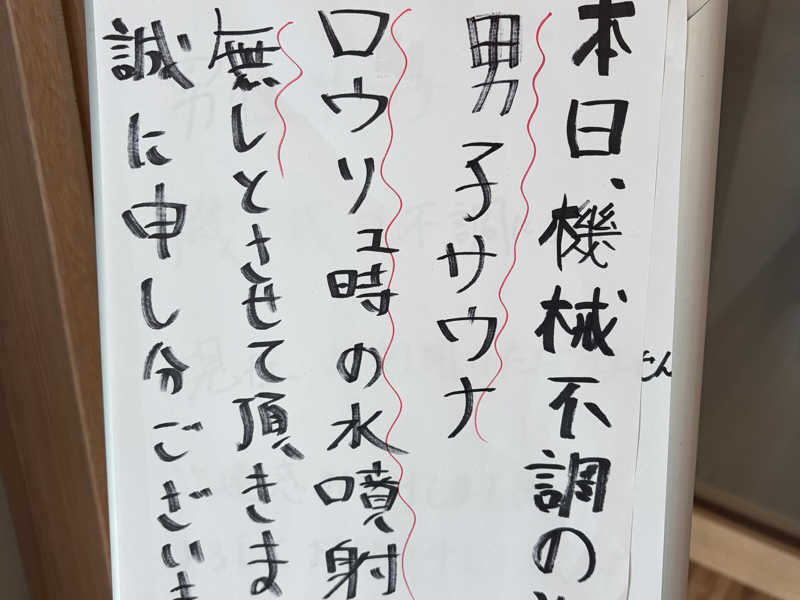 本日、機械不調の
男子サウナ
ロウリュ時の水噴射
無しとさせて頂きま
誠に申し分ございま